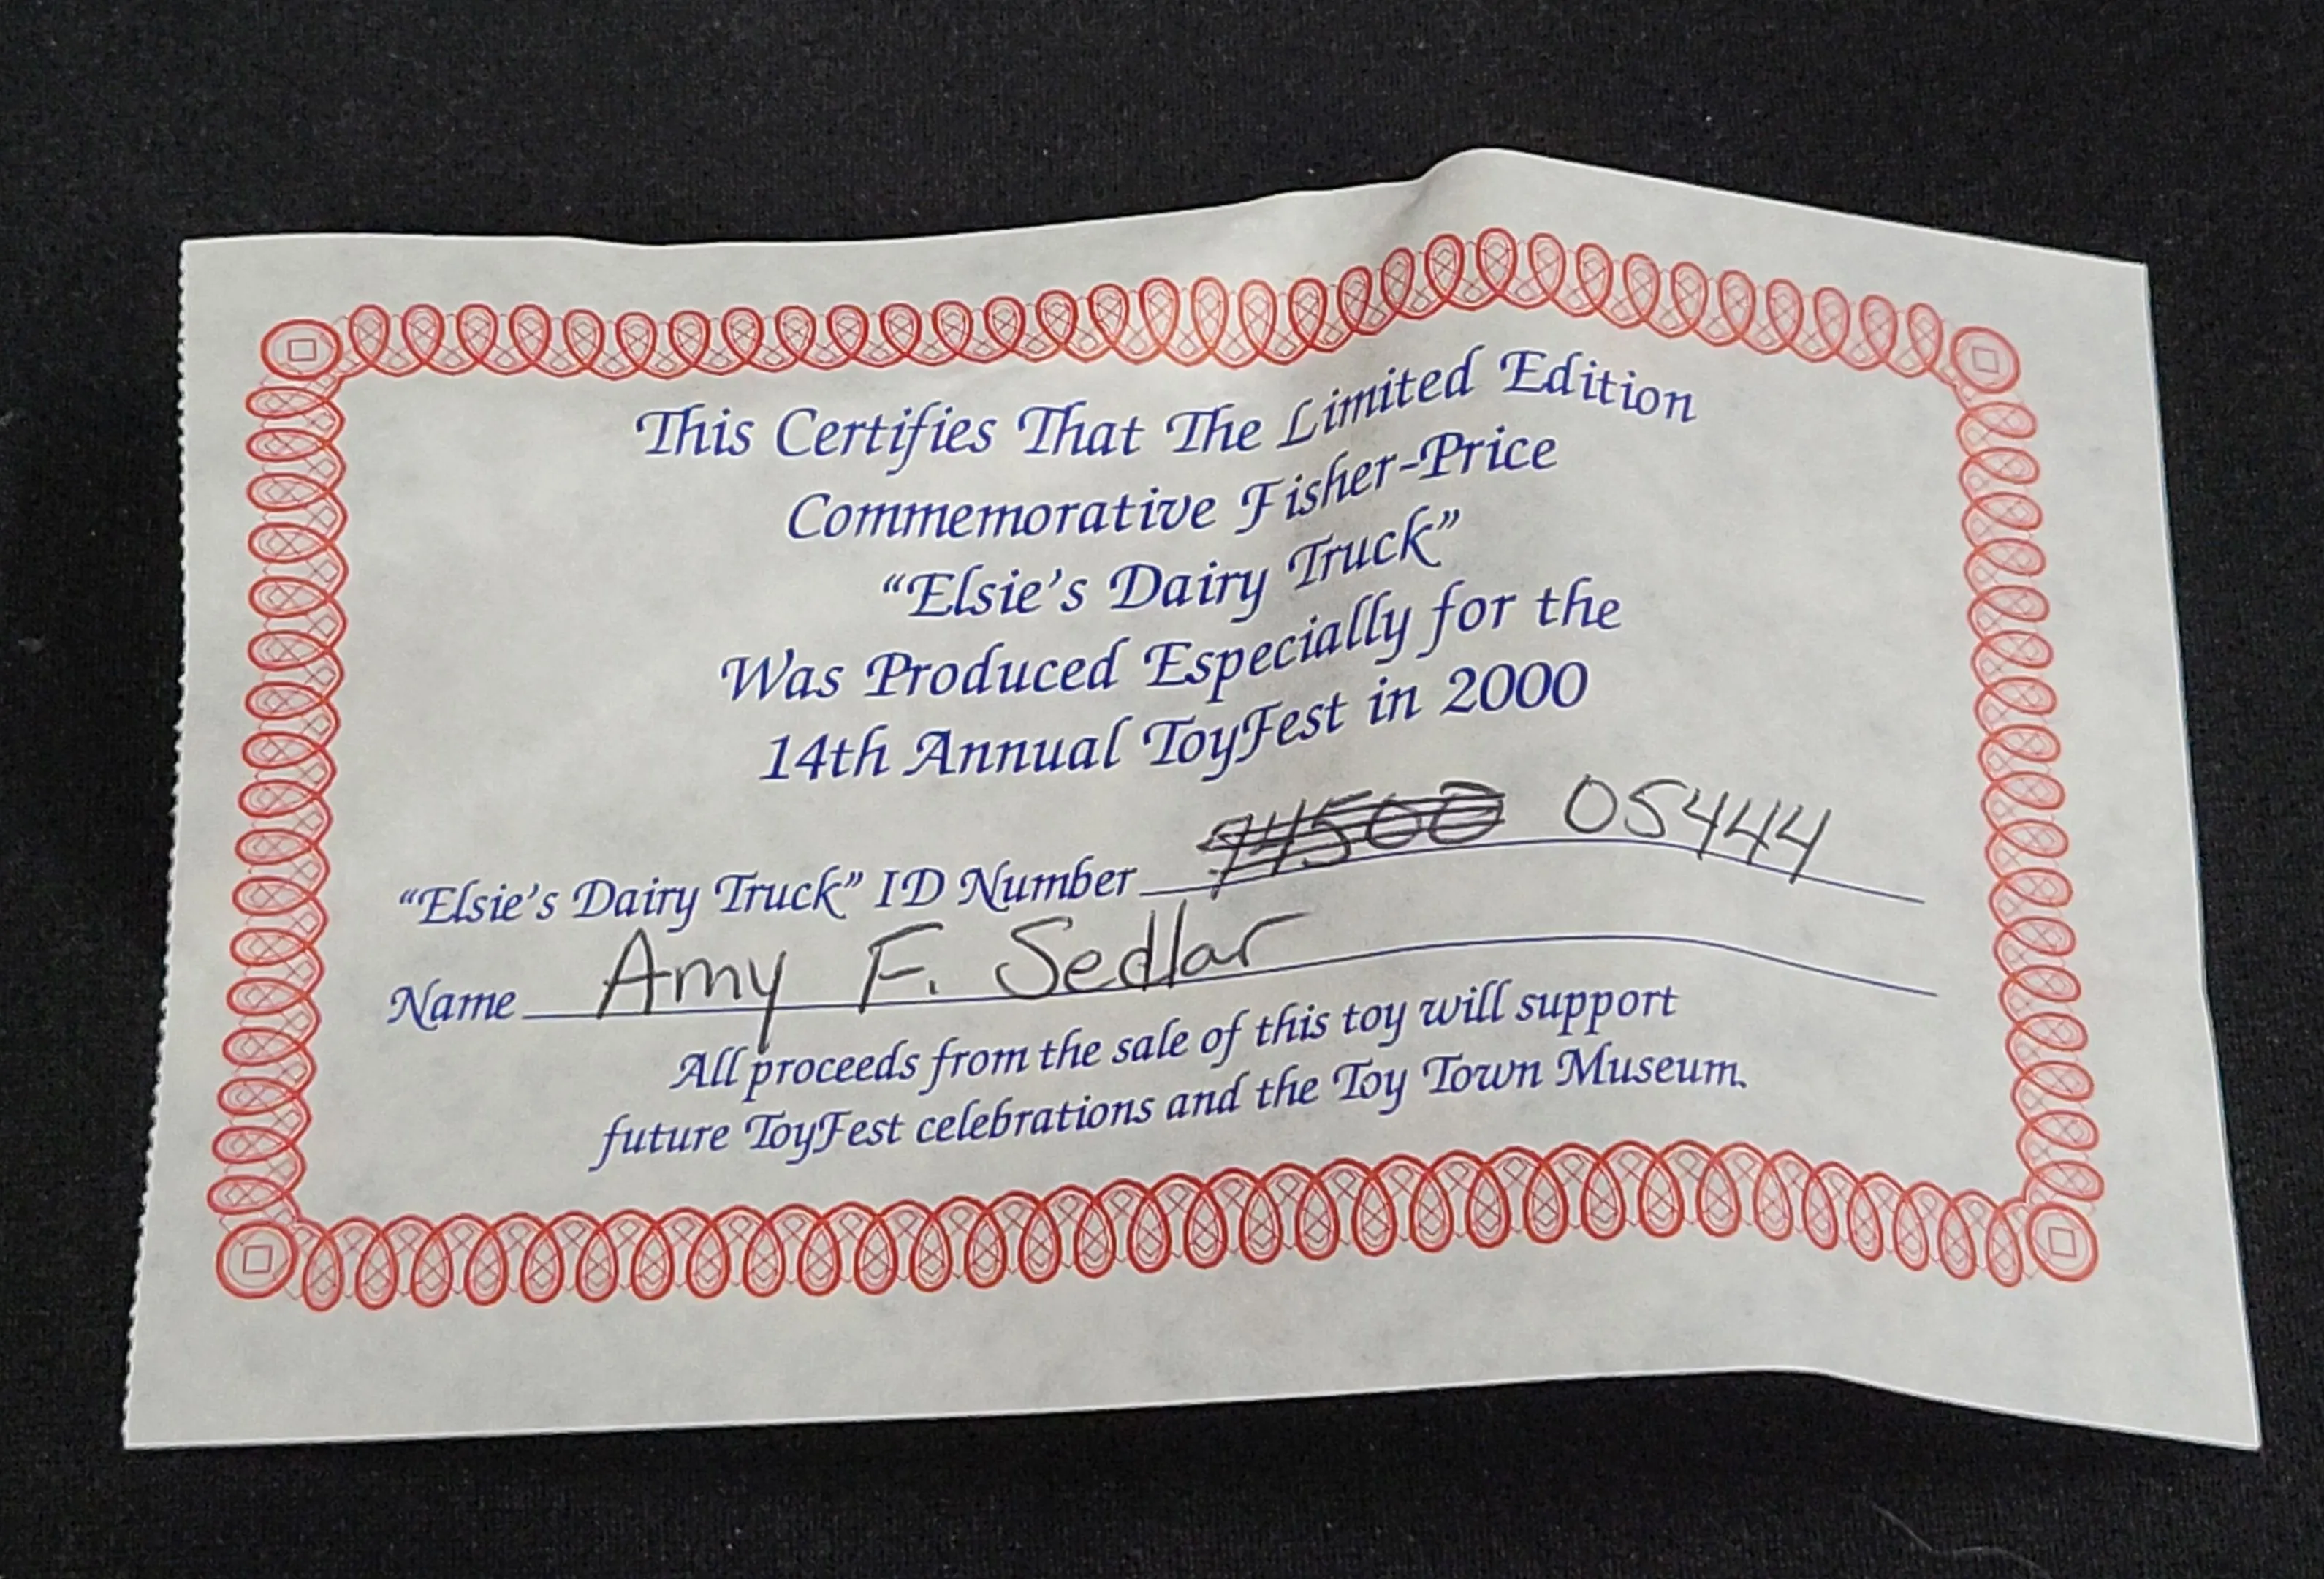 This Certifies That The Limited Edition
Commemorative Fisher-Price
“Elsie’s Dairy Truck”
Was Produced Especially for the
14th Annual ToyFest in 2000
“Elsie’s Dairy Truck” ID Number 05444
Name Amy F. Sedlar
All proceeds from the sale of this toy will support
future ToyFest celebrations and the Toy Town Museum.